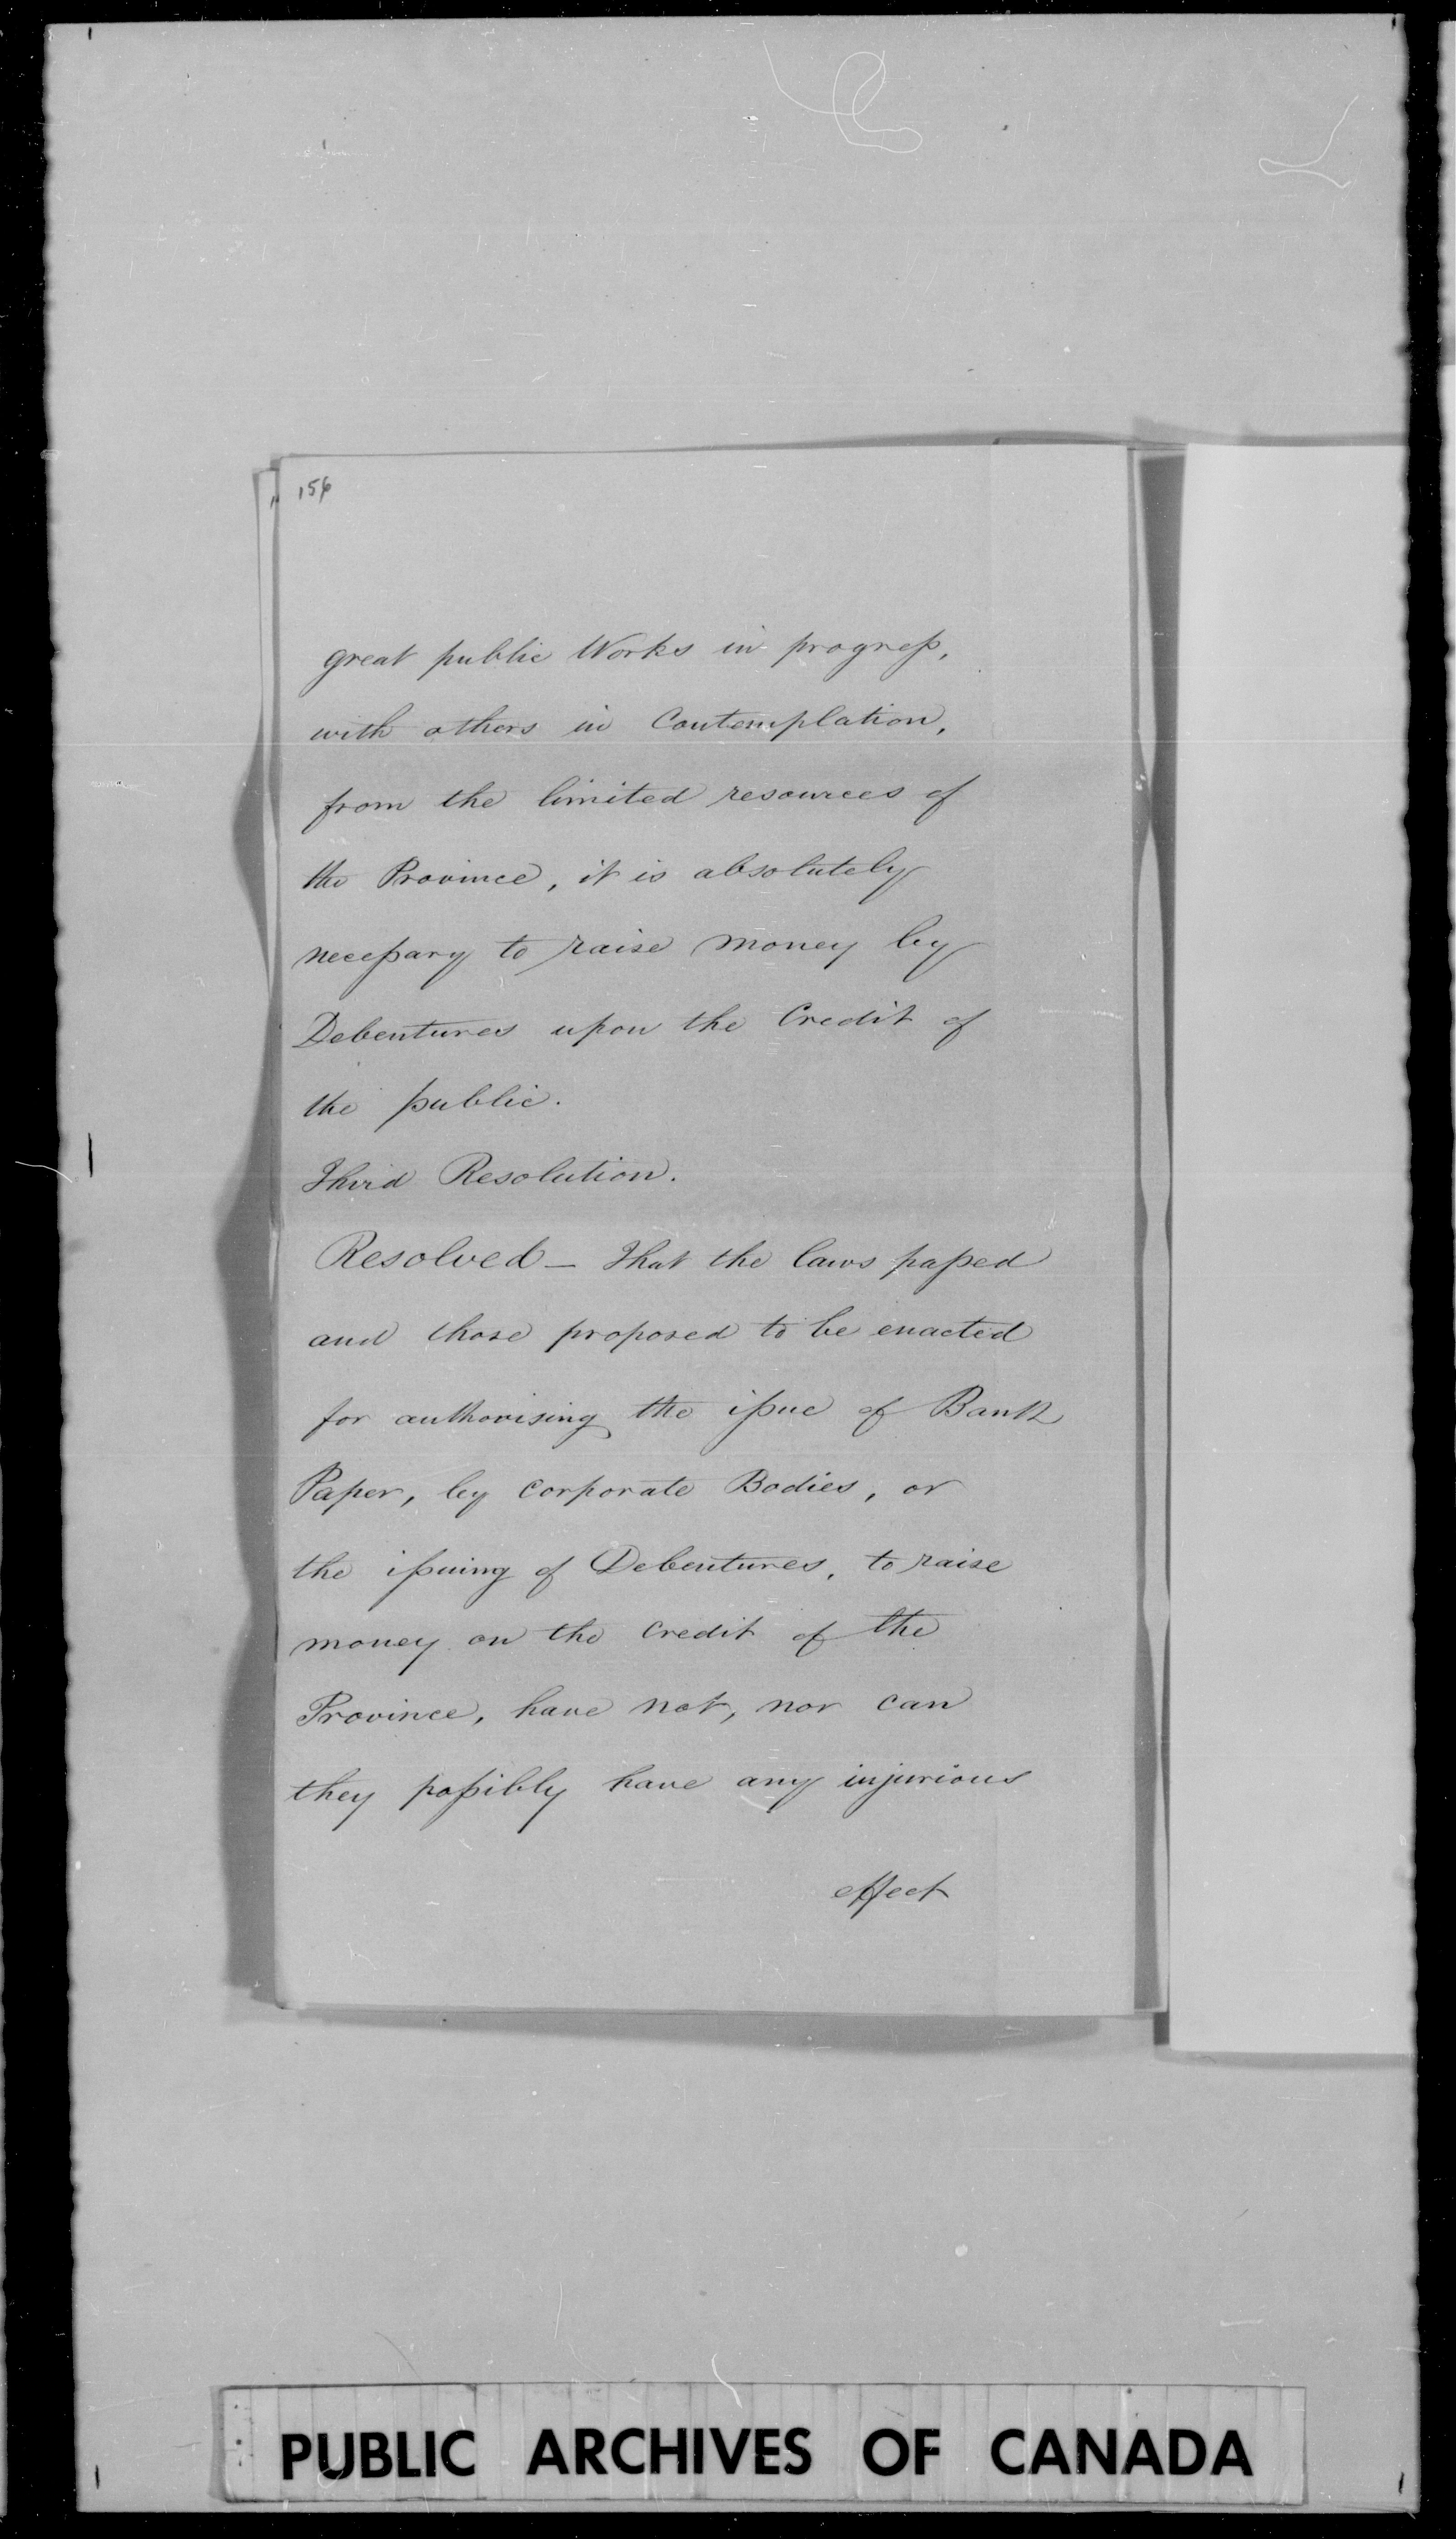 156
great public Works in progress,
with others in Contemplation,
from the limited resources of
the Province, it is absolutely
necessary to raise money by
Debentures upon the Credit of
the public.
Third Resolution.
Resolved – That the laws passed
and those proposed to be enacted
for authorising the issue of Bank
Paper, by corporate Bodies, or
the issuing of Debentures, to raise
money on the credit of the
Province, have not, nor can
they possibly have any injurious
effect
PUBLIC ARCHIVES OF CANADA